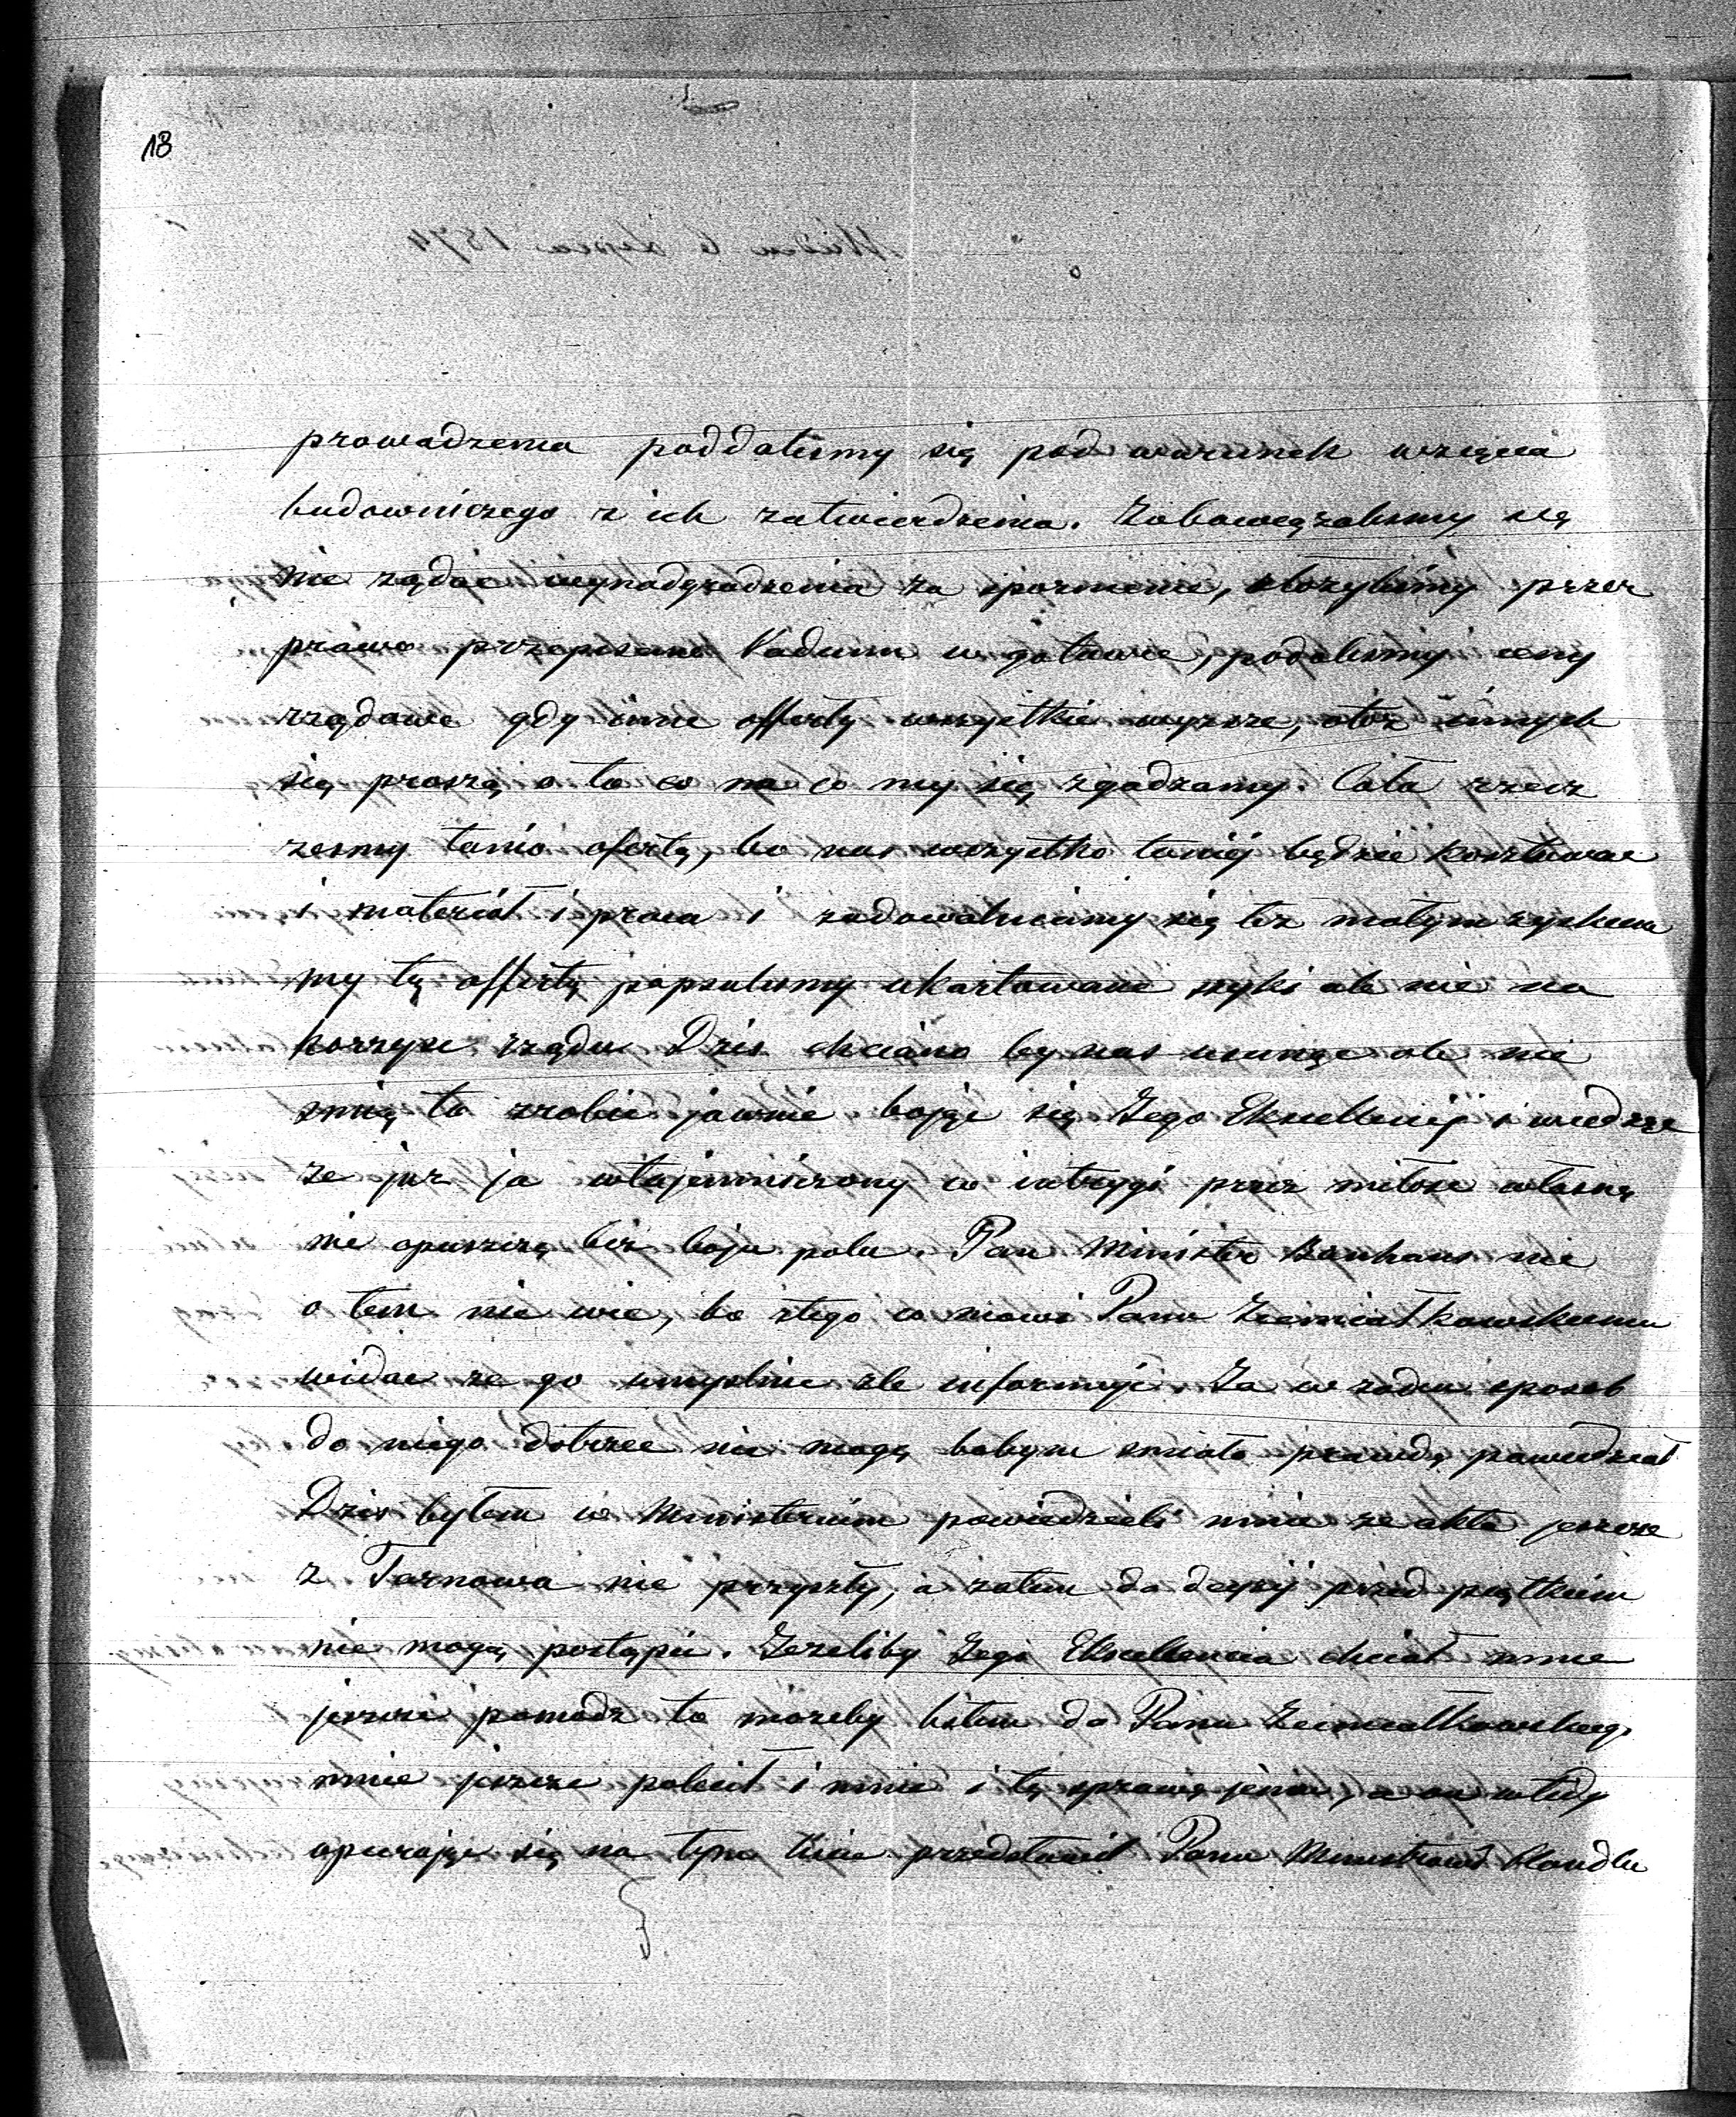 18
prowadzenia poddaliśmy się pod warunek wzięcia
budowniczego z ich zatwierdzenia. Zobowiązaliśmy się
nie żądać wynadgrodzenia za  złożyliśmy przez
prawo przepisane Vadium w gotowce, podaliśmy ceny
rządowe gdy inne offerty wszystkie wyższe, otóż innych
się proszą o to co na co my się zgadzamy. Cała rzecz
żeśmy tanio ofertą, bo nas wszystko taniej będzie kosztować
i materiał i praca i zadowalniamy się też małym zyskiem
my tą offertą popsuliśmy ukartowane szyki ale nie na
korzyść rządu. Dziś chciano by nas usunąć ale nie
śmią to zrobić jawnie bojąc się Jego Ekscellencij i wiedząc
że już ja wtajemniczony w intrygi przez miłość własną
nie opuszczę bez boju pola. Pan Minister Banhans nic
o tem nie wie, bo z tego co mówi Panu Ziemiałkowskiemu
widać że go umyślnie źle informują. Ja w żaden sposób
do niego dotrzeć nie mogę bobym śmiało prawdę powiedział
Dziś byłem w Ministerium powiedzieli mnie że akta jeszcze
z Tarnowa nie przyszły, a zatem do decyzij przed piątkiem
nie mogą postąpić. Jeżeliby Jego Ekscellencia chciał mnie
jeszcze pomódz to możeby listem do Pana Ziemiałkowskiego
mnie jeszcze polecił i mnie i tę sprawę jemu, a on wtedy
opierając się na tym liście przedstawił Panu Ministrowi handlu